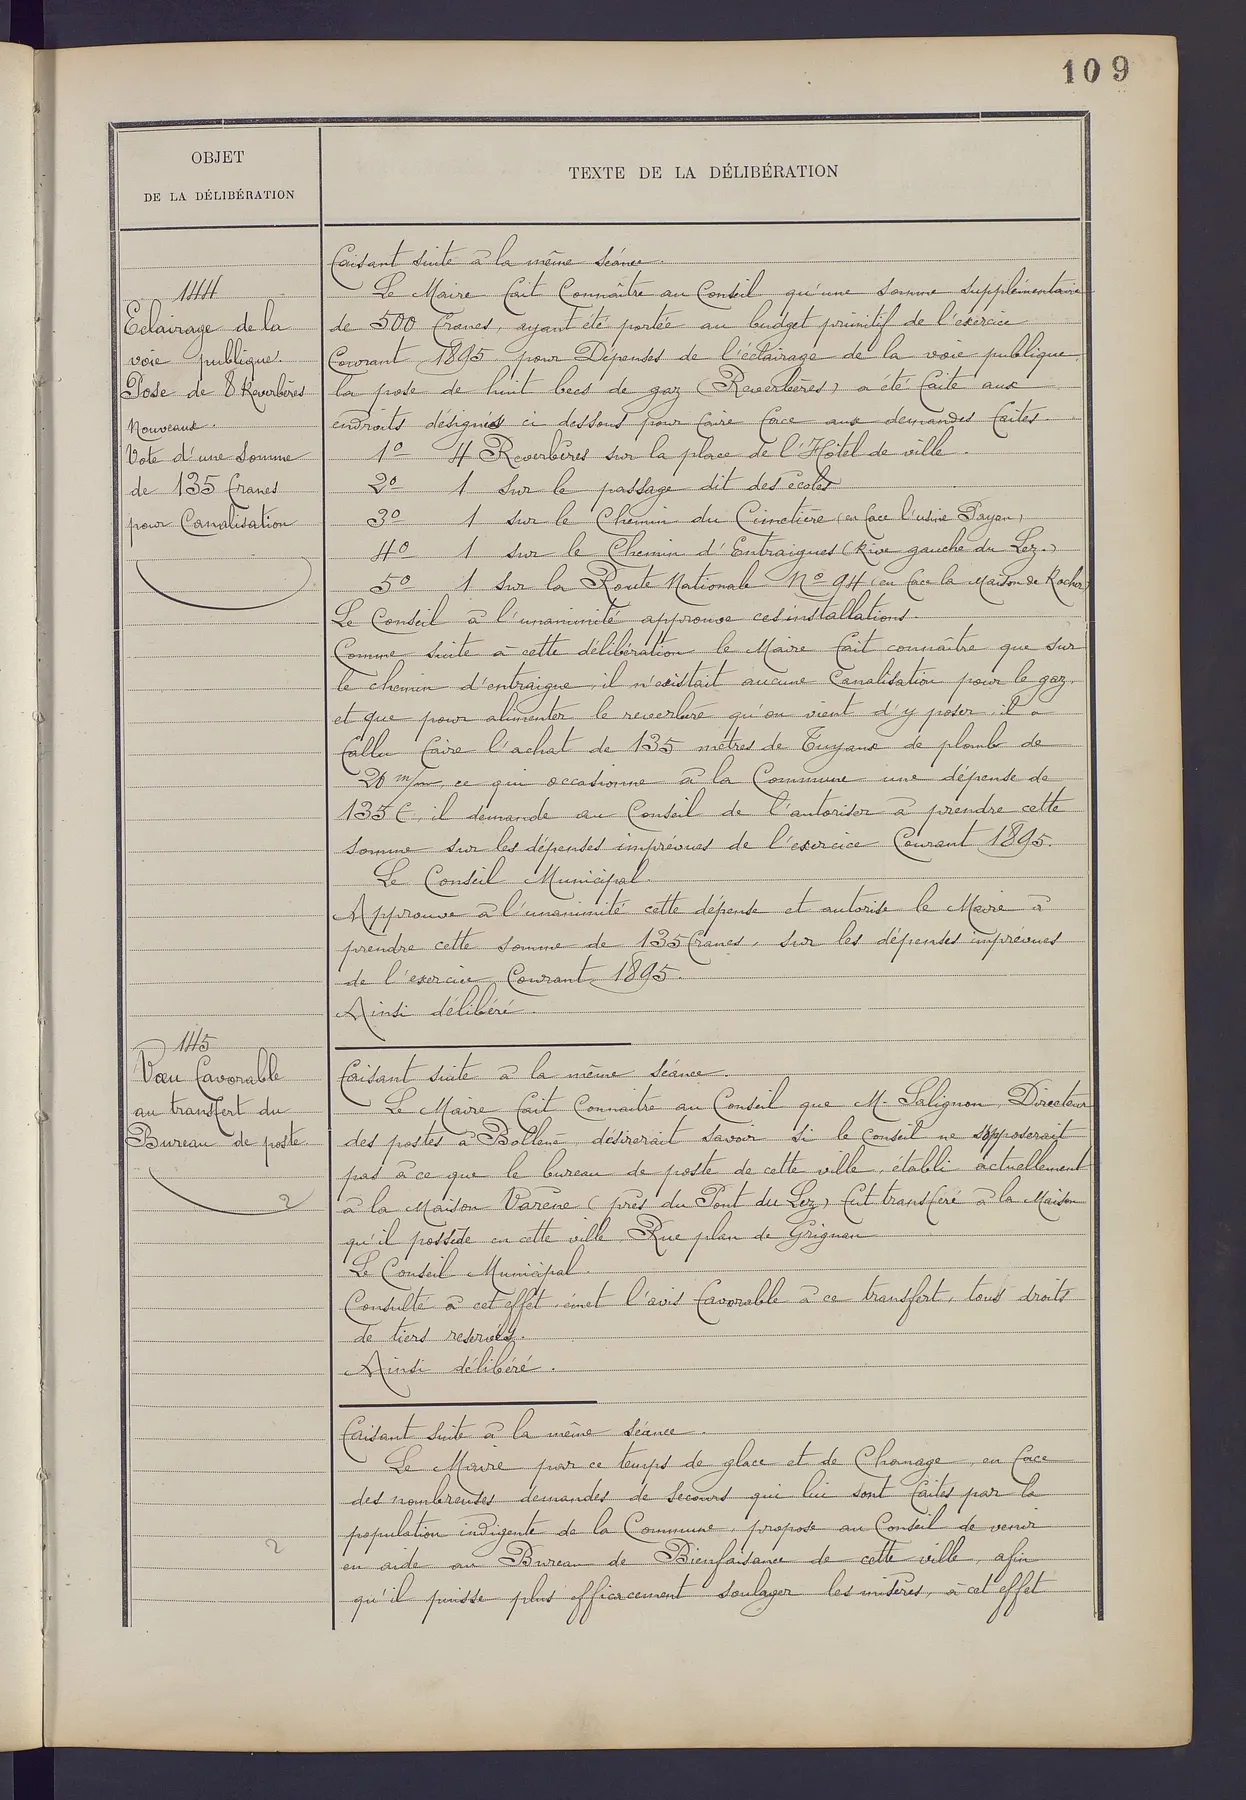 109
OBJET
DE LA DÉLIBÉRATION
TEXTE DE LA DÉLIBÉRATION
144
Eclairage de la
voie publique.
Pose de 8 Reverbères
Nouveaux.
Vote d'une Somme
de 135 francs
pour Canalisation
Faisant suite à la même séance.
Le Maire fait Connaître au Conseil qu'une somme supplémentaire
de 500 francs, ayant été portée au budget primitif de l'exercice
Courant 1895 pour Dépenses de l'éclairage de la voie publique,
la pose de huit becs de gaz (Reverbères) a été faite aux
endroits désignés ci dessous pour faire face aux demandes faites.
1º 4 Reverbères sur la place de l'Hôtel de ville.
2º 1 Sur le passage dit des écoles
3º 1 sur le Chemin du Cimetière (en face l'usine Payan)
4º 1 sur le Chemin d'Entraigues (Rive gauche du Lez.)
5º 1 Sur la Route Nationale Nº 94 (en face la Maison de Rocher)
Le Conseil à l'unanimité approuve ces installations.
Comme suite à cette délibération le Maire fait connaître que sur
le chemin d'entraigue, il n'existait aucune Canalisation pour le gaz,
et que pour alimenter le reverbère qu'on vient d'y poser, il a
fallu faire l'achat de 135 mètres de Tuyaux de plomb de
20 m/m, ce qui occasionne à la Commune une dépense de
135 f, il demande au Conseil de l'autoriser à prendre cette
somme sur les dépenses imprévues de l'exercice Courant 1895.
Le Conseil Municipal.
Approuve à l'unanimité cette dépense et autorise le Maire à
prendre cette somme de 135 francs, sur les dépenses imprévues
de l'exercice Courant 1895.
Ainsi délibéré.
145
Vœu favorable
au transfert du
Bureau de poste.
2
Faisant suite à la même séance.
Le Maire fait Connaitre au Conseil que M. Salignon, Directeur
des postes à Bollène, désirerait savoir si le Conseil ne s'opposerait
pas à ce que le bureau de poste de cette ville, établi actuellement
à la Maison Varène (près du Pont du Lez) fut transféré à la Maison
qu'il possède en cette ville, Rue plan de Grignan
Le Conseil Municipal.
Consulté à cet effet, émet l'avis favorable à ce transfert, tous droits
de tiers reservés.
Ainsi délibéré.
Faisant suite à la même séance.
Le Maire par ce temps de glace et de Chomage, en face
des nombreuses demandes de Secours qui lui sont faites par la
population indigente de la Commune, propose au Conseil de venir
2
en aide au Bureau de Bienfaisance de cette ville, afin
qu'il puisse plus efficacement soulager les misères, à cet effet